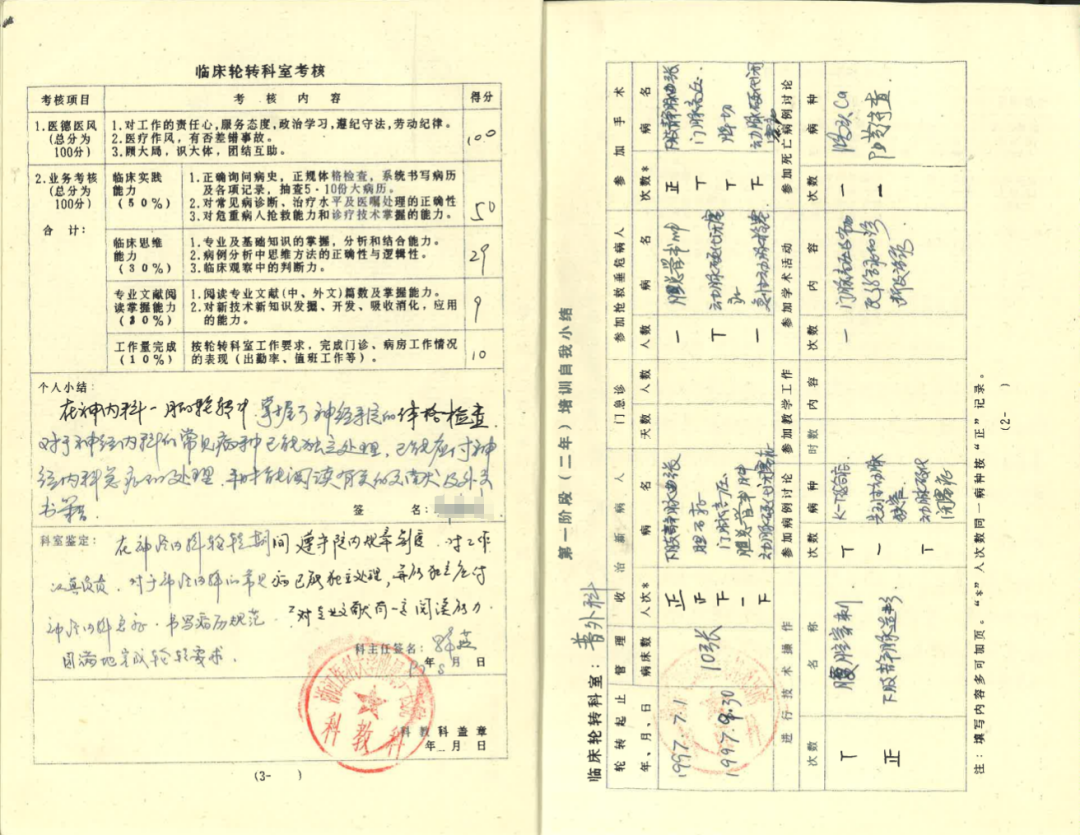 临床轮转科室考核
考核项目 考核内容 得分
1.医德医风 1.对工作的责任心,服务态度,政治学习,遵纪守法,劳动纪律。
(总分为 2.医疗作风,有否差错事故。 100
100分) 3.顾大局,识大体,团结互助。
2.业务考核 临床实践 1.正确询问病史,正规体格检查,系统书写病历
(总分为 能力 及各项记录,抽查5-10份大病历。
100分) (50%) 2.对常见病诊断、治疗水平及医嘱处理的正确性 50
3.对危重病人抢救能力和诊疗技术掌握的能力。
合计:
临床思维 1.专业及基础知识的掌握,分析和结合能力。
能力 2.病例分析中思维方法的正确性与逻辑性。 29
(30%) 3.临床观察中的判断力。
专业文献阅 1.阅读专业文献(中、外文)篇数及掌握能力。
读掌握能力 2.对新技术新知识发掘、开发、吸收消化,应用 9
的能力。
工作量完成 按轮转科室工作要求,完成门诊、病房工作情况
(10%) 的表现(出勤率、值班工作等)。 10
个人小结:
在神内科一月的轮转中,掌握了神经系统的体格检查
对于神经内科的常见病种已能独立处理,已能应付神
经内科急症的处理,平时能阅读有关的文献及外文
书籍。
签名:
科室鉴定: 在神经内科轮转期间遵守院内规章制度,对工作
认真负责,对于神经内科的常见病已能独立处理,并能独立应付
神经内科急症,书写病历规范,对专业文献有一定阅读能力
圆满地完成轮转要求。
科主任签名:
年 月 日
科教科
科教科盖章
年 月 日
(3- )
第一阶段(二年)培训自我小结
临床轮转科室:普外科
轮转起止 管理 收治新病人 门急诊 参加抢救重危病人 参加手术
年、月、日 病床数 人次数* 病名 天数 人数 人数 病名 次数* 病名
1997.7.1
1997.9.30
10张
正 下肢静脉曲张
胆石症
门脉高压
胆总管囊肿
动脉硬化闭塞症
一 胆总管囊肿
动脉硬化闭塞
正 下肢静脉曲张
门脉高压
动脉硬化闭塞
进行技术操作 参加病例讨论 参加教学工作 参加学术活动 参加死亡病例讨论
次数 名称 次数 病种 时数 内容 次数 内容 次数 病种
腹腔穿刺
正 下肢静脉造影
K-T综合症
动脉硬化
闭塞症
注:填写内容多可加页。“*”人次数同一病种按“正”记录。
(2- )